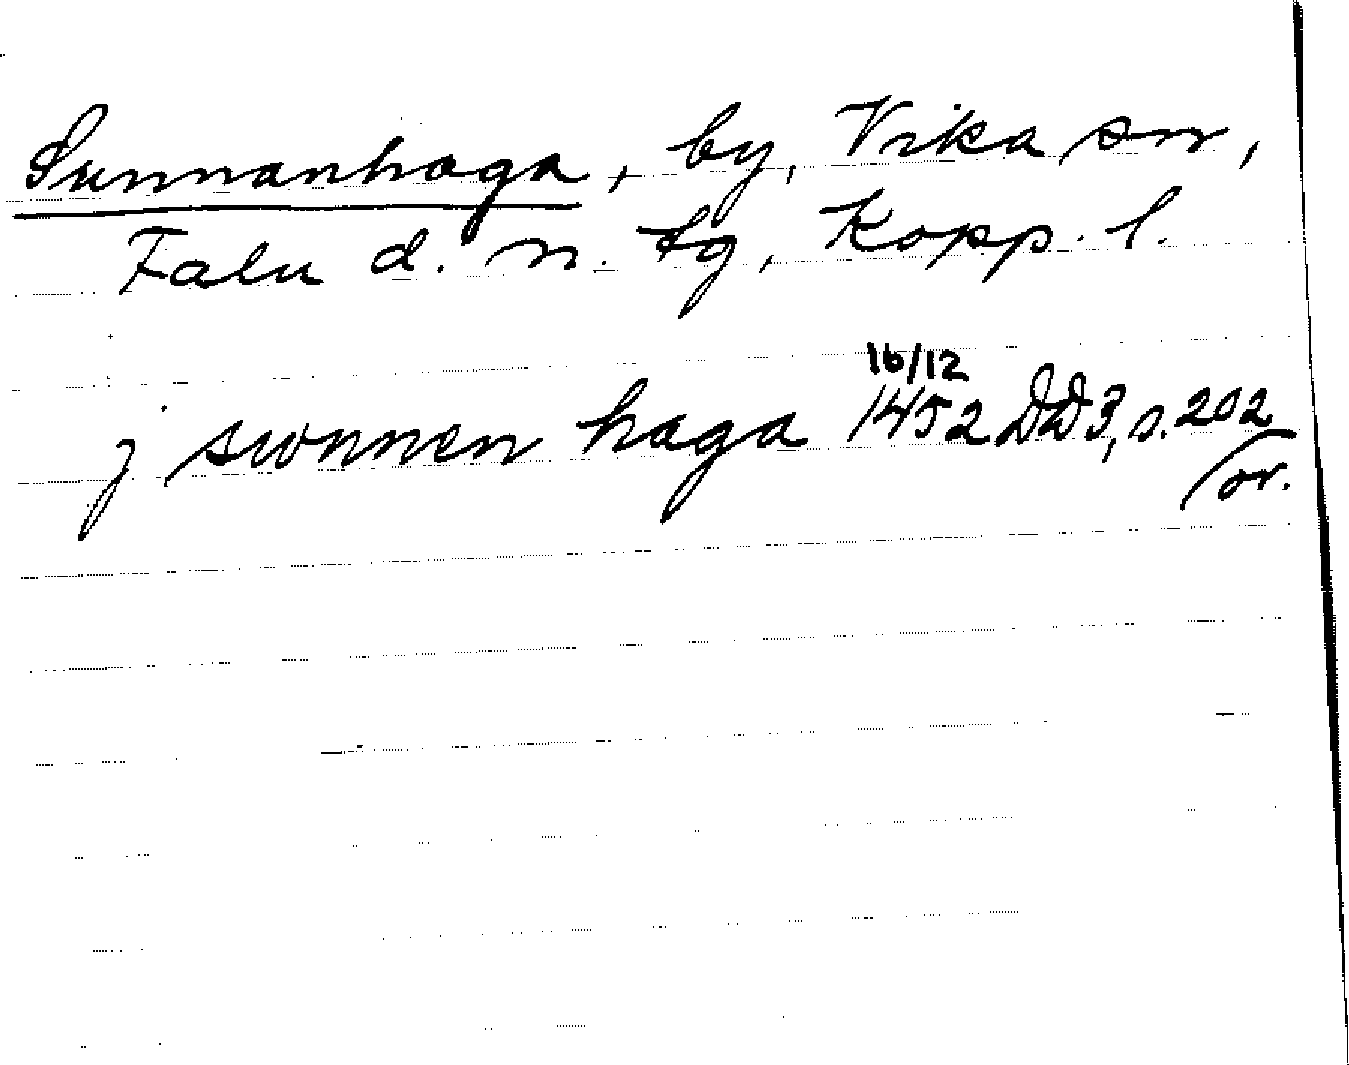 Sunnanhaga, by, Vika sn,
Falu d. n. tg, Kopp. l.
16/12
j swnnen haga 1452 DD3, s. 202
or.